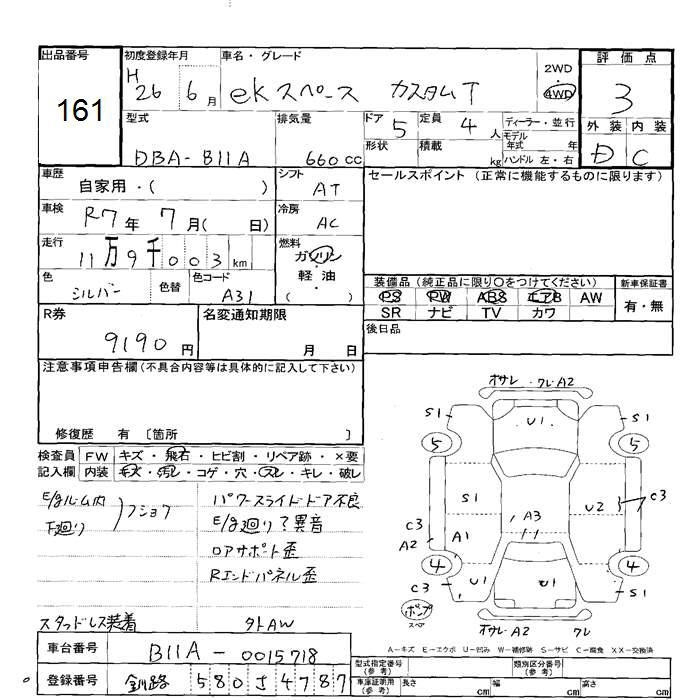 出品番号
161
初度登録年月
H 26 6月
車名・グレード
ekスペース カスタムT
2WD
4WD
評価点
3
外装 内装
D C
型式
DBA-B11A
排気量
660cc
ドア 5
定員 4人
形状
積載 kg
ディーラー・並行
モデル年式 年
ハンドル 左・右
車歴
自家用・( )
シフト
AT
車検
R7年 7月( 日)
冷房
AC
走行
11万9千003km
燃料
ガソリン
軽・油
( )
色
シルバー
色替
色コード
A31
セールスポイント (正常に機能するものに限ります)
装備品(純正品に限り○をつけてください)
PS PW ABS エアB AW
SR ナビ TV カワ
新車保証書
有・無
後日品
R券
9190円
名変通知期限
月 日
注意事項申告欄(不具合内容等は具体的に記入して下さい)
修復歴 有 〔箇所 〕
検査員記入欄
FW キズ・飛石・ヒビ割・リペア跡・×要
内装 キズ・汚レ・コゲ・穴・スレ・キレ・破レ
E/gルーム内
下廻り
フショク
パワースライドドア不良
E/g廻り?異音
ロアサポート歪
Rエンドパネル歪
スタッドレス装着
外AW
車台番号
B11A-0015718
登録番号
釧路 580 す 4787
オサレ・クレA2
S1
U1
S1
5
5
S1
U2
C3
C3
A2
A1
A3
4
4
C3
U1
U1
S1
ポンプ
スペア
オサレ・A2 クレ
A-キズ E-エクボ U-凹み W-補修跡 S-サビ C-腐食 XX-交換済
型式指定番号(参考)
類別区分番号(参考)
車庫証明用(参考)
長さ cm
幅 cm
高さ cm